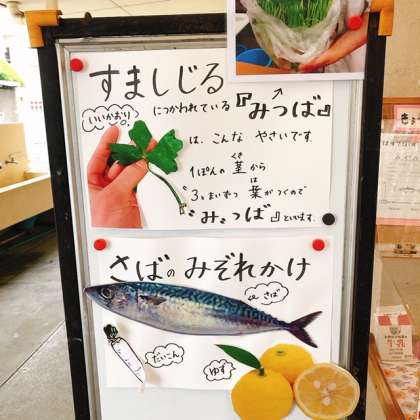 すましじる
につかわれている『みつば』
いいかおり
は、こんな やさいです。
1ぽんの 茎から
くき
"3"まいずつ 葉がつくので
は
"み"つば といいます。
さばの みぞれかけ
さば
だいこん
ゆず
牛乳